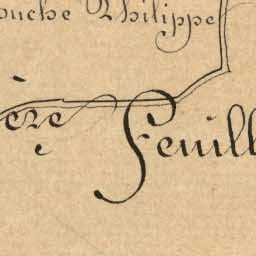 ouche Philippe
ère Feuill